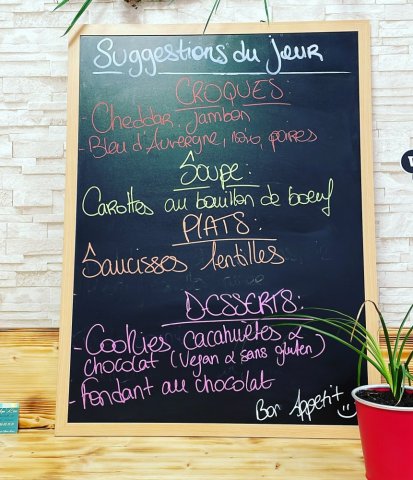 Suggestions du jour
CROQUES:
- Cheddar, jambon
- Bleu d'Auvergne, noix, poires
Soupe:
Carottes au bouillon de boeuf
PLATS:
Saucisses lentilles
DESSERTS:
- Cookies cacahuètes &
chocolat (Vegan & sans gluten)
- Fondant au chocolat
Bon Appetit